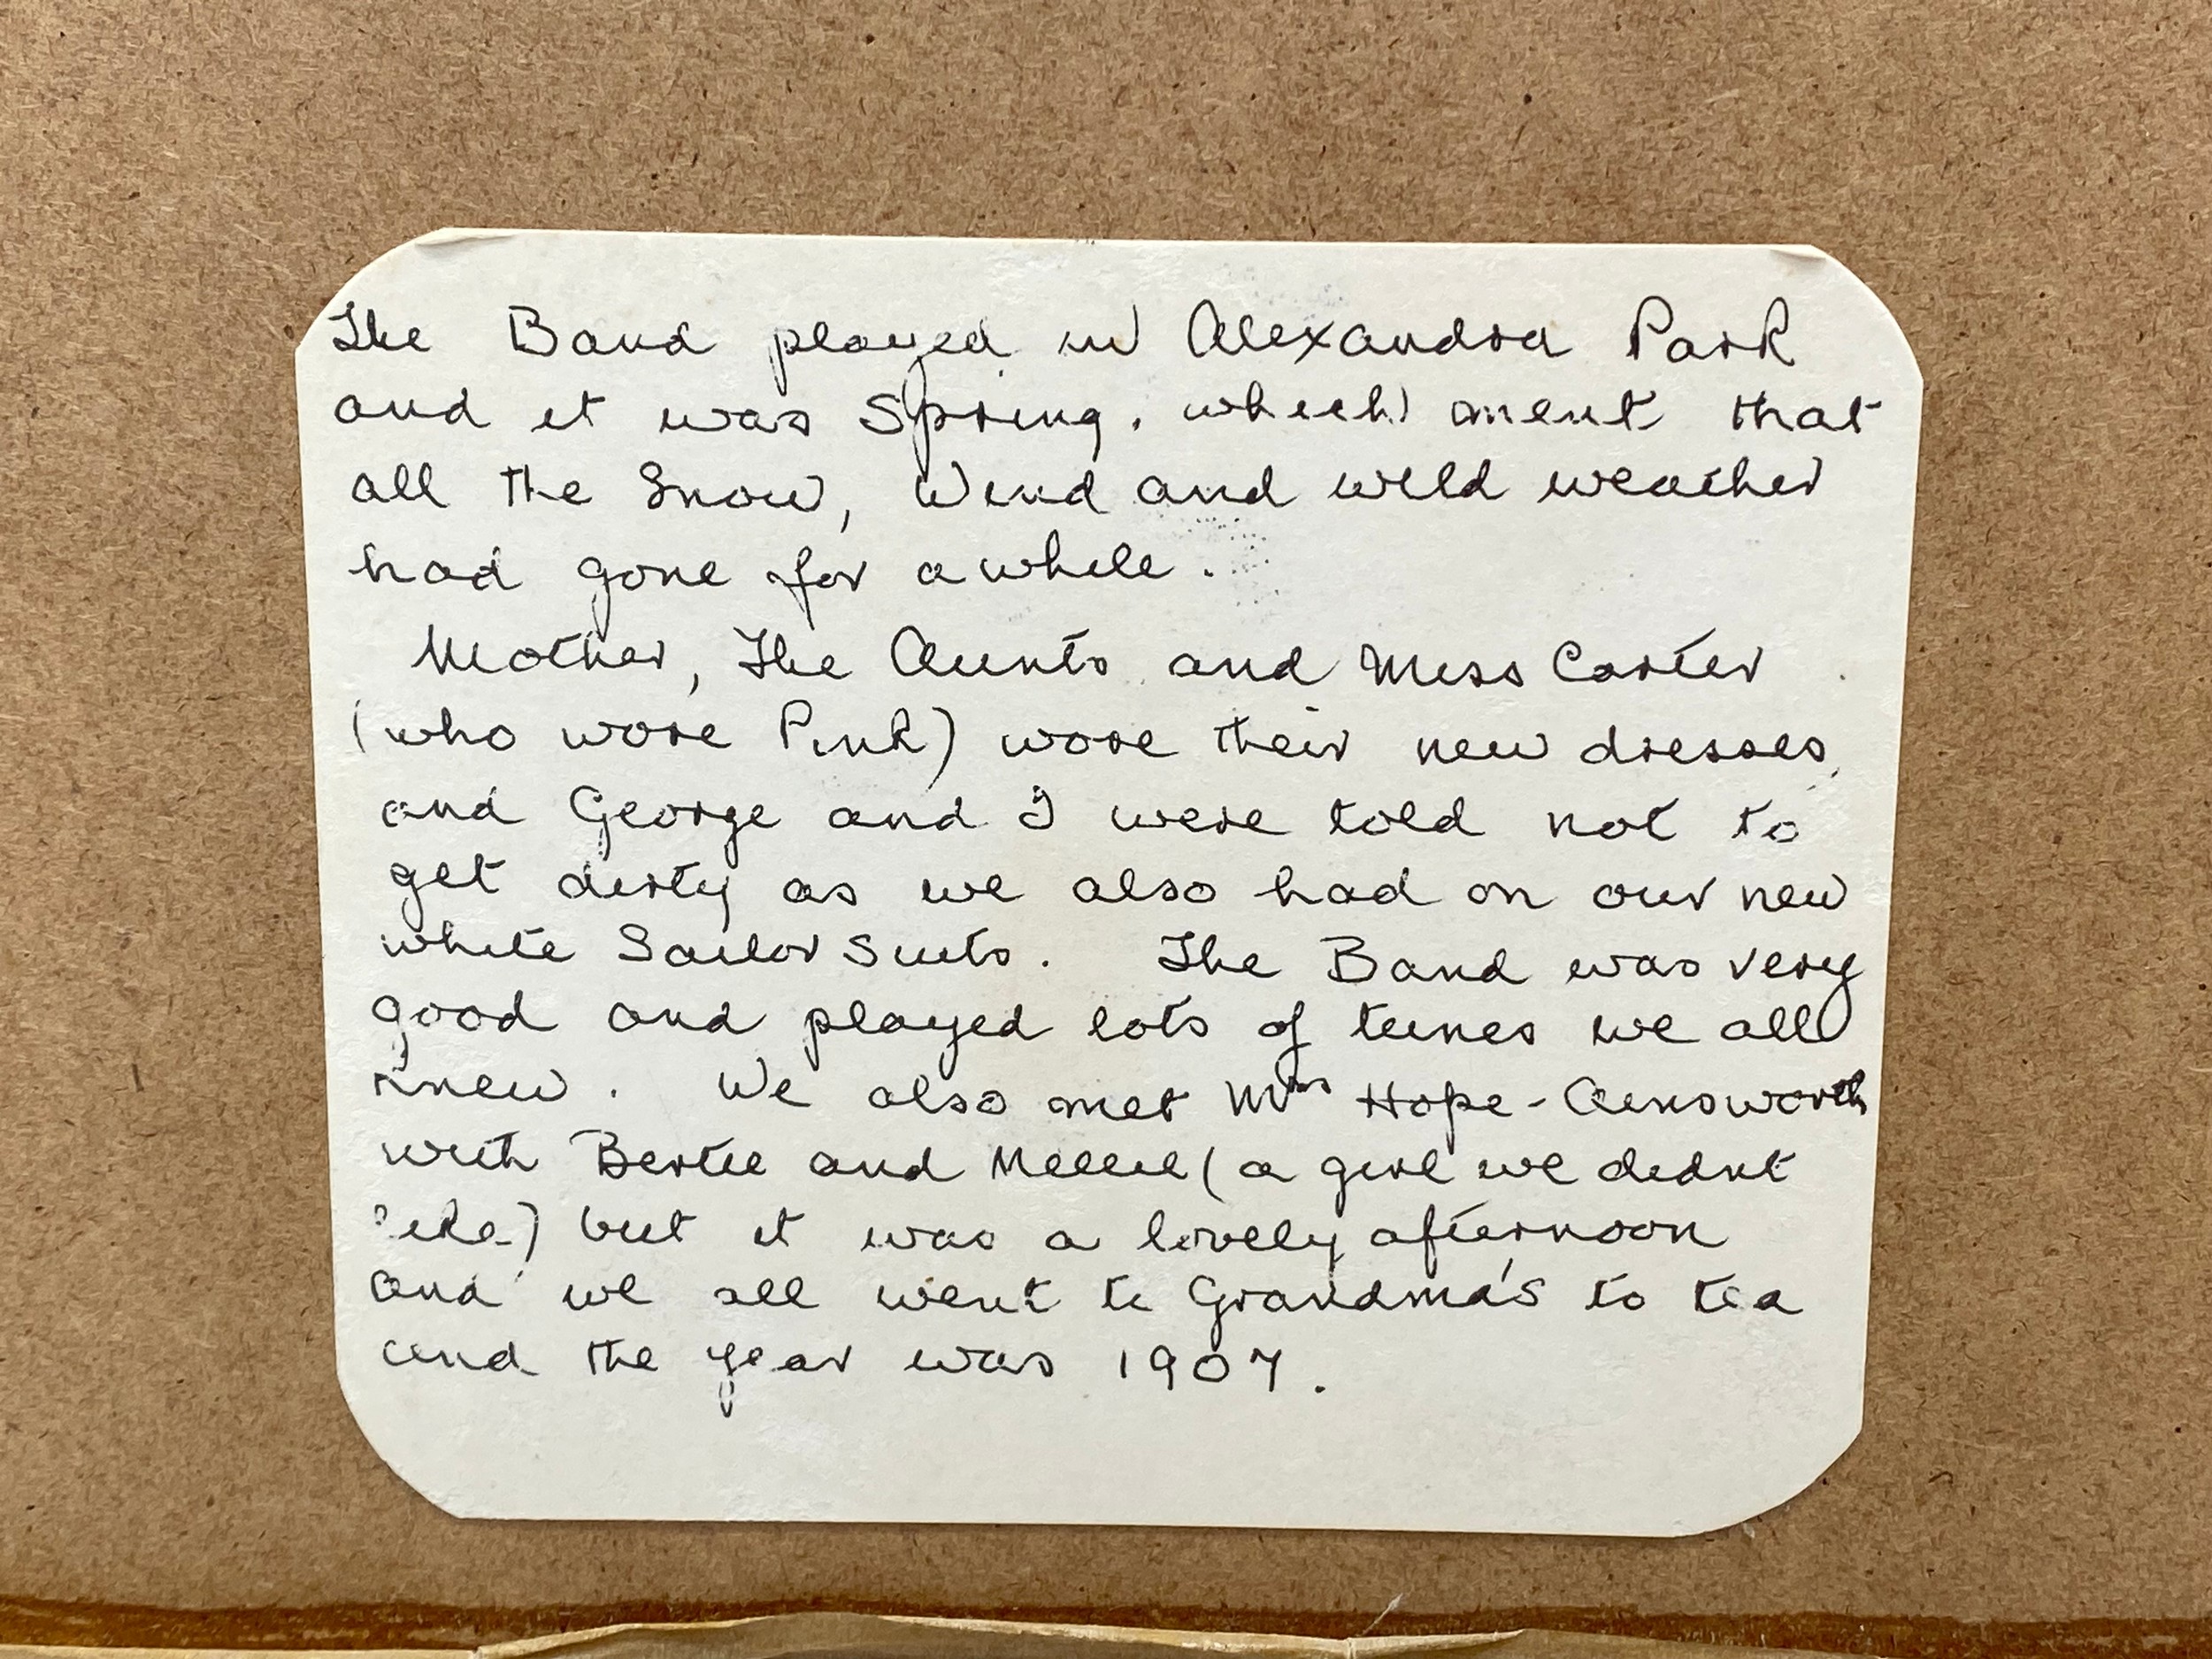 The Band played in Alexandra Park
and it was Spring, which ment that
all the Snow, Wind and wild weather
had gone for awhile.
Mother, The Aunts and Miss Carter
(who wore Pink) wore their new dresses,
and George and I were told not to
get dirty as we also had on our new
white Sailor Suits. The Band was very
good and played lots of tunes we all
knew. We also met Mrs Hope-Ainsworth
with Bertie and Millie (a girl we didnt
like) but it was a lovely afternoon
and we all went to Grandma's to tea
and the year was 1907.